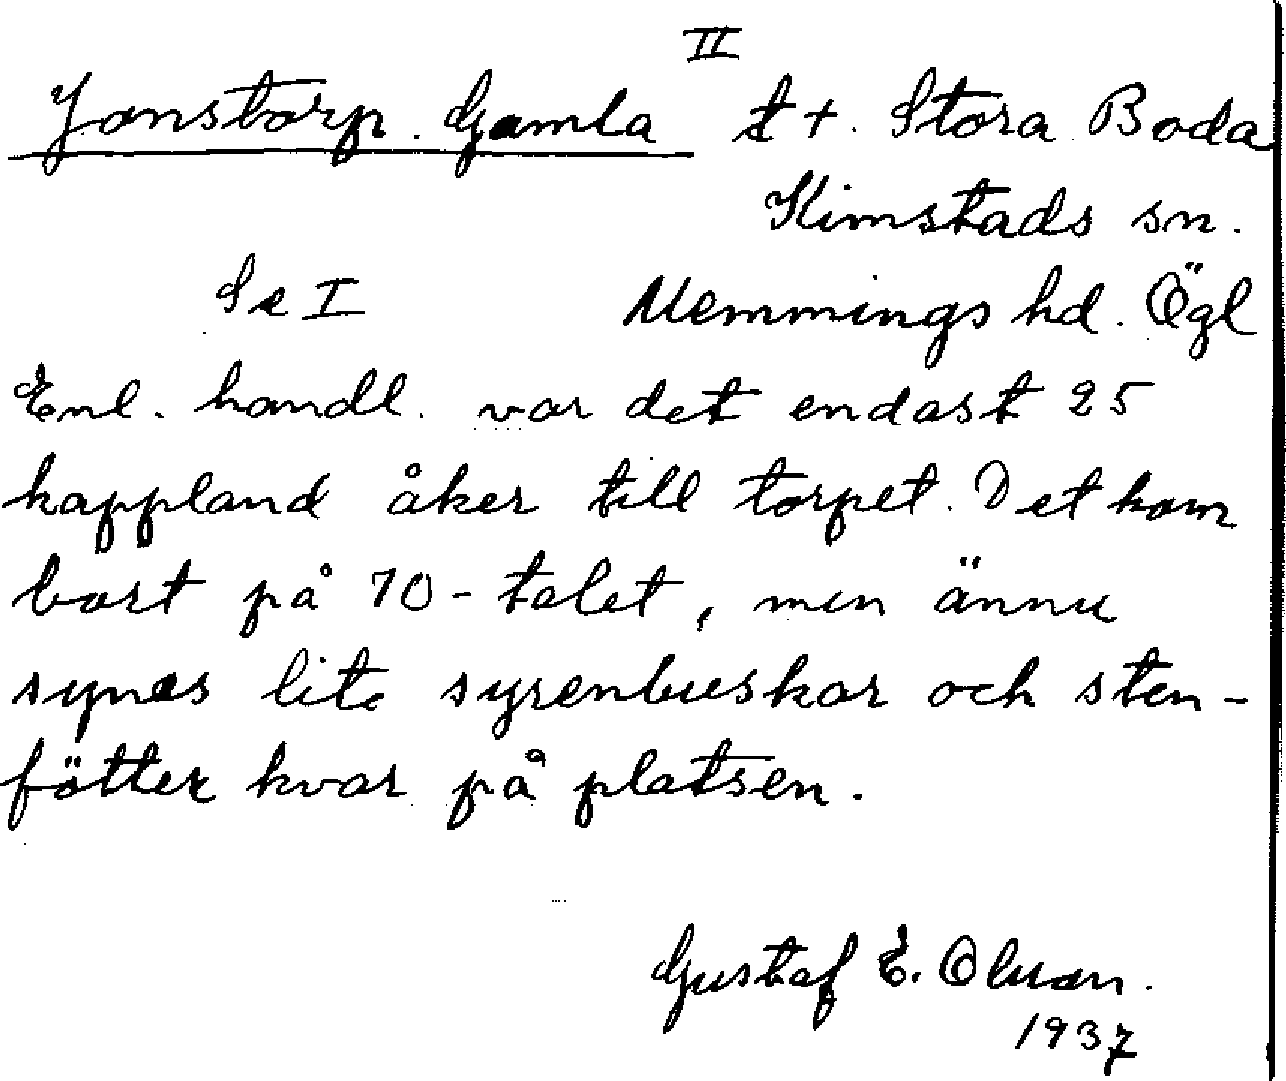 II
Jonstorp. Gamla t +. Stora Boda
Kimstads sn.
Se I Memmings hd. Ögl
Enl. handl. var det endast 25
kappland åker till torpet. Det kom
bort på 70-talet, men ännu
synes lite syrenbuskar och sten-
fötter kvar på platsen.
Gustaf E.
1937